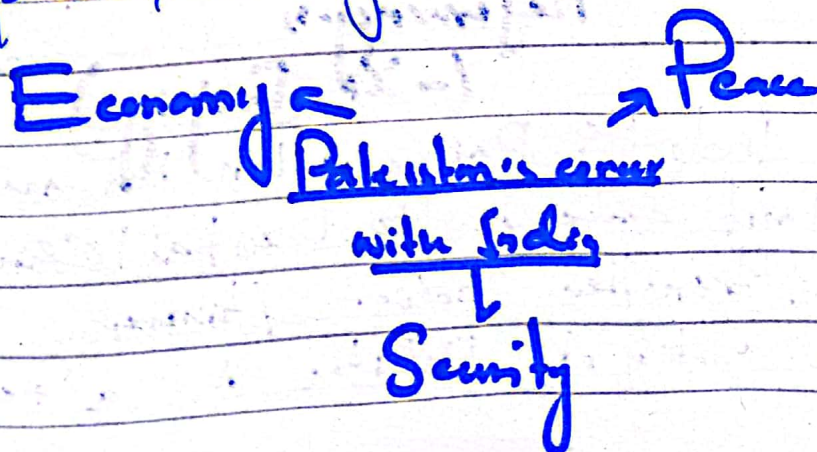 Economy
Peace
Pakistan's
with India
Security